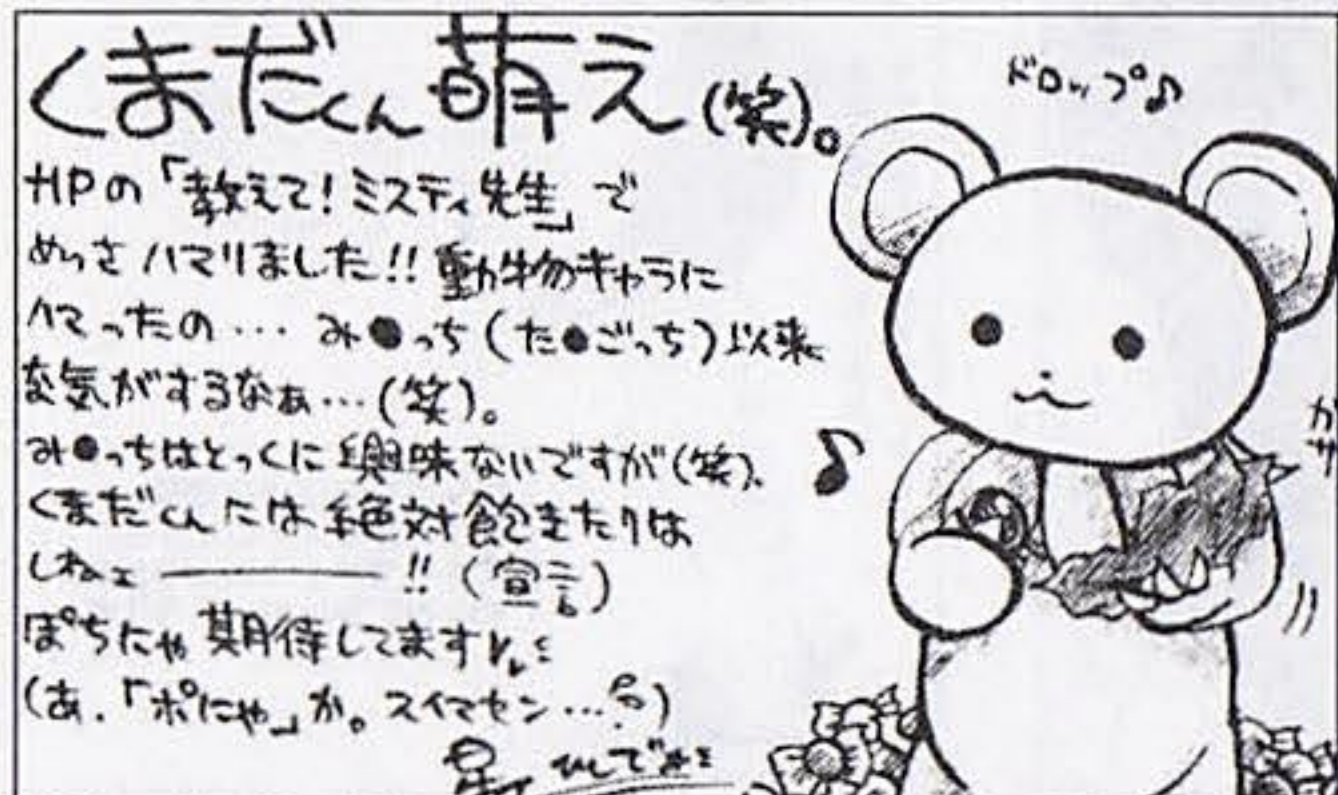 くまだくん萌え(笑)。
ドロップ♪
HPの「教えて!ミスティ先生」で
めっさハマリました!!動物キャラに
ハマったの…み●っち(た●ごっち)以来
な気がするなぁ…(笑)。
み●っちはとっくに興味ないですが(笑)。
くまだくんには絶対飽きたりは
しねェ────!!(宣言)
ぽちにゃ期待してます
(あ、「ポにゃ」か。スイマセン…)
♪
カサ
星